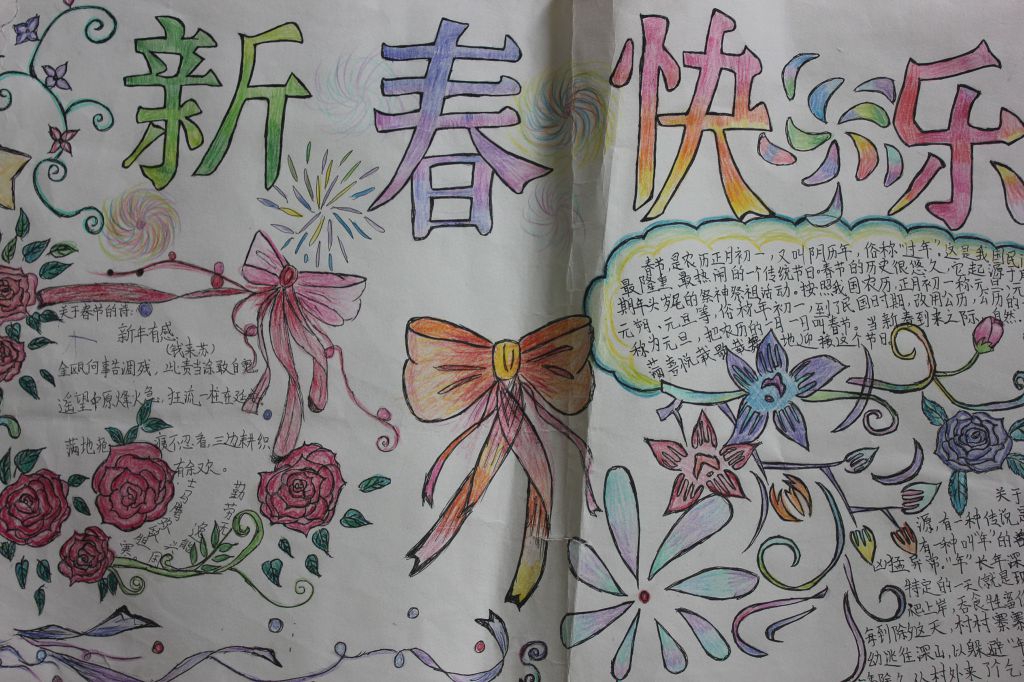 新春快乐
春节是农历正月初一,又叫阴历年,俗称"过年",这是我国民间
最隆重、最热闹的一个传统节日。春节的历史很悠久,它起源于
期年头岁尾的祭神祭祖活动。按照我国农历,正月初一称元旦、元
元朔、元正等,俗称年初一,到了民国时期,改用公历,公历的
称为元旦,把农历的一月一日叫春节。当新春到来之际,自然
地迎接这个节日。
关于春节的诗:
新年有感
(钱来苏)
金瓯何事告凋残,此责当涂敢自
遥望中原烽火急,狂流一柱在延
满地疮痍不忍看,三边耕织
有余欢。
勤
劳
关于
源,有一种传说,
有一种叫"年"的
凶猛异常。"年"长年深
特定的一天(就是现
爬上岸,吞食牲畜
年到除夕这天,村村寨寨
幼逃往深山,以躲避"年
年除夕,从村外来了个乞